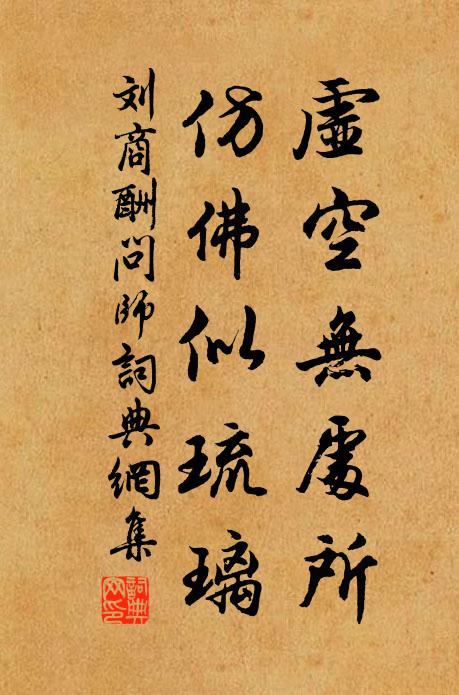 虛空無處所
仿佛似琉璃
刘商酬问師詞典網集
詞典
网印